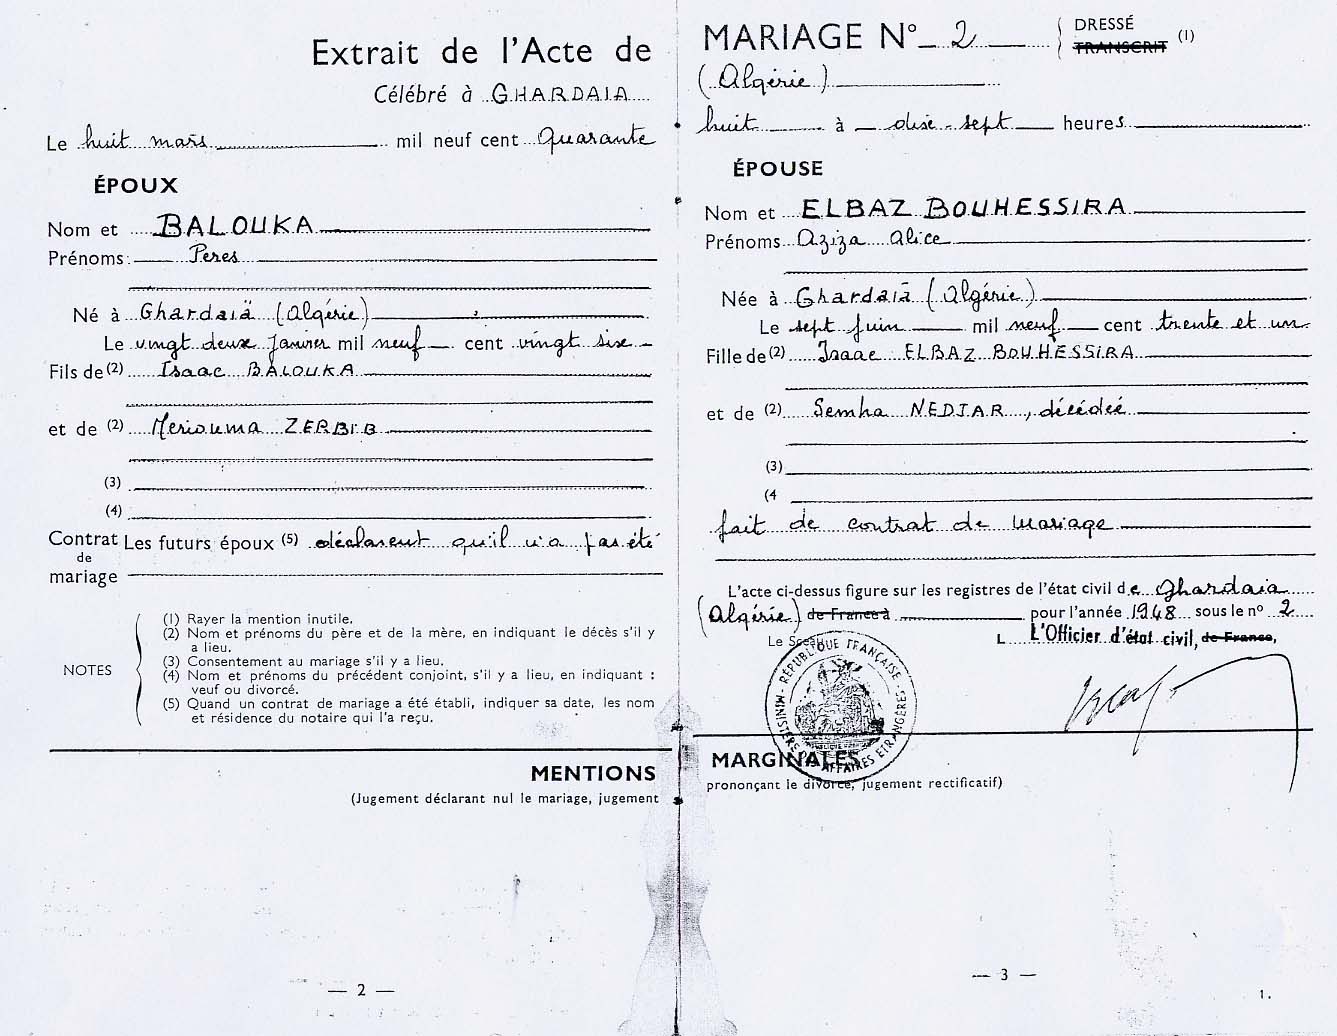 Extrait de l'Acte de MARIAGE N° 2 DRESSÉ TRANSCRIT (1)
Célébré à GHARDAIA (Algérie)
Le huit mars mil neuf cent Quarante huit à dise-sept heures
ÉPOUX
Nom et BALOUKA
Prénoms: Peres
Né à Ghardaïä (Algérie)
Le vingt deux Janvier mil neuf cent vingt sixe
Fils de (2) Isaac BALOUKA
et de (2) Meriouma ZERBIB
(3)
(4)
ÉPOUSE
Nom et ELBAZ BOUHESSIRA
Prénoms Aziza Alice
Née à Ghardaïa (Algérie)
Le sept Juin mil neuf cent trente et un
Fille de (2) Isaac ELBAZ BOUHESSIRA
et de (2) Semha NEDJAR, décédée
(3)
(4
Contrat de mariage Les futurs époux (5) déclarent qu'il n'a pas été fait de contrat de mariage
NOTES
(1) Rayer la mention inutile.
(2) Nom et prénoms du père et de la mère, en indiquant le décès s'il y
a lieu.
(3) Consentement au mariage s'il y a lieu.
(4) Nom et prénoms du précédent conjoint, s'il y a lieu, en indiquant :
veuf ou divorcé.
(5) Quand un contrat de mariage a été établi, indiquer sa date, les nom
et résidence du notaire qui l'a reçu.
L'acte ci-dessus figure sur les registres de l'état civil de Ghardaia
(Algérie) de France à pour l'année 1948 sous le n° 2
Le Sceau
L L'Officier d'état civil, de France,
RÉPUBLIQUE FRANÇAISE - MINISTERE DES AFFAIRES ETRANGÈRES
MENTIONS MARGINALES
(Jugement déclarant nul le mariage, jugement prononçant le divorce, jugement rectificatif)
— 2 —
— 3 —
1.